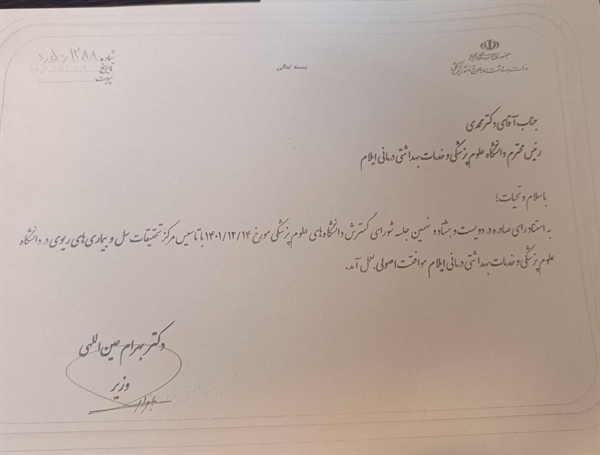 جمهوری اسلامی ایران
وزارت بهداشت، درمان و آموزش پزشکی
بسمه تعالی
شماره
تاریخ
پیوست
جناب آقای دکتر محمدی
رئیس محترم دانشگاه علوم پزشکی و خدمات بهداشتی درمانی ایلام
با سلام و تحیات؛
به استناد رای صادره در دویست و هشتاد و نهمین جلسه شورای گسترش دانشگاه های علوم پزشکی مورخ ۱۴۰۱/۱۲/۱۴ با تاسیس مرکز تحقیقات سل و بیماری های ریوی در دانشگاه
علوم پزشکی و خدمات بهداشتی درمانی ایلام موافقت اصولی بعمل آمد.
دکتر بهرام عین اللهی
وزیر